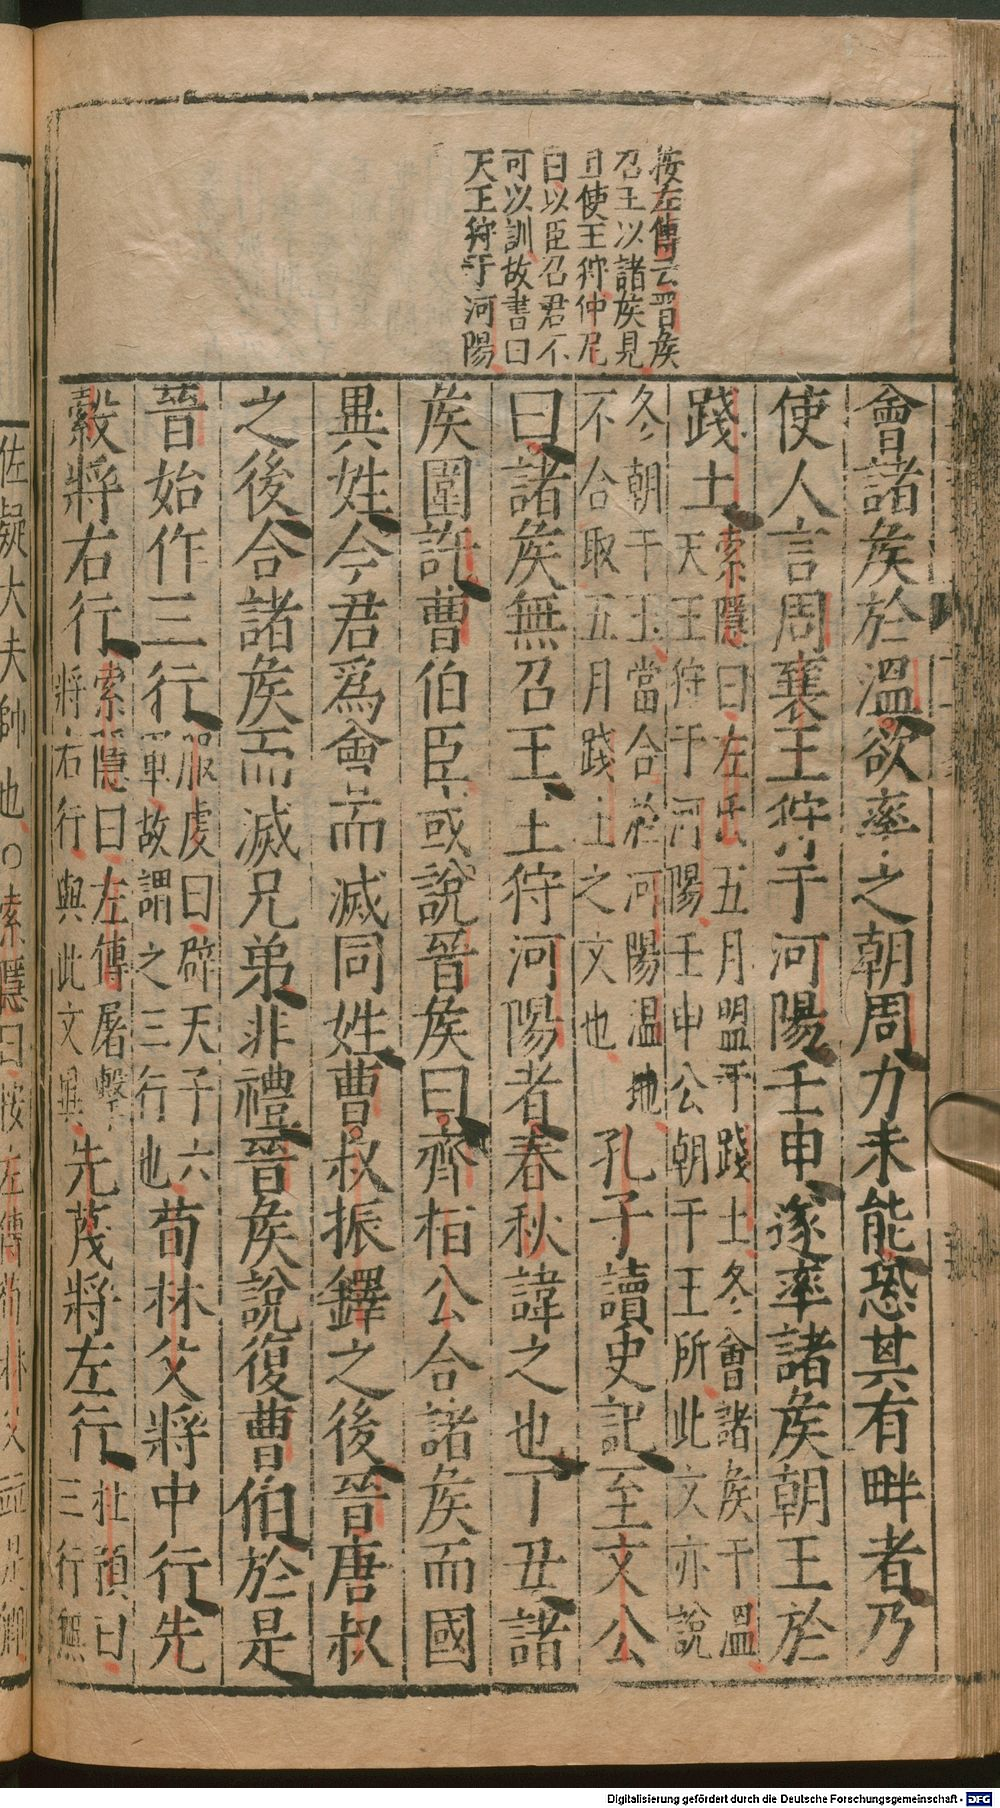 按左傳云晉矦
召王以諸矦見
且使王狩仲尼
曰以臣召君不
可以訓故書曰
天王狩于河陽
會諸矦於溫欲率之朝周力未能恐其有畔者乃
使人言周襄王狩于河陽壬申遂率諸矦朝王於
踐土
索隱曰左氏五月盟于踐土冬會諸矦于溫
天王狩于河陽壬申公朝于王所此文亦說
冬朝于王當合於河陽溫地
不合取五月踐土之文也
孔子讀史記至文公
曰諸矦無召王王狩河陽者春秋諱之也丁丑諸
矦圍許曹伯臣或說晉矦曰齊桓公合諸矦而國
異姓今君爲會而滅同姓曹叔振鐸之後晉唐叔
之後合諸矦而滅兄弟非禮晉矦說復曹伯於是
晉始作三行
服虔曰辟天子六
軍故謂之三行也
荀林父將中行先
縠將右行
索隱曰左傳屠擊
將右行與此文異
先蔑將左行
杜預曰
三行無
佐疑大夫帥也○索隱曰按左傳荀林父並是卿
Digitalisierung gefördert durch die Deutsche Forschungsgemeinschaft - DFG